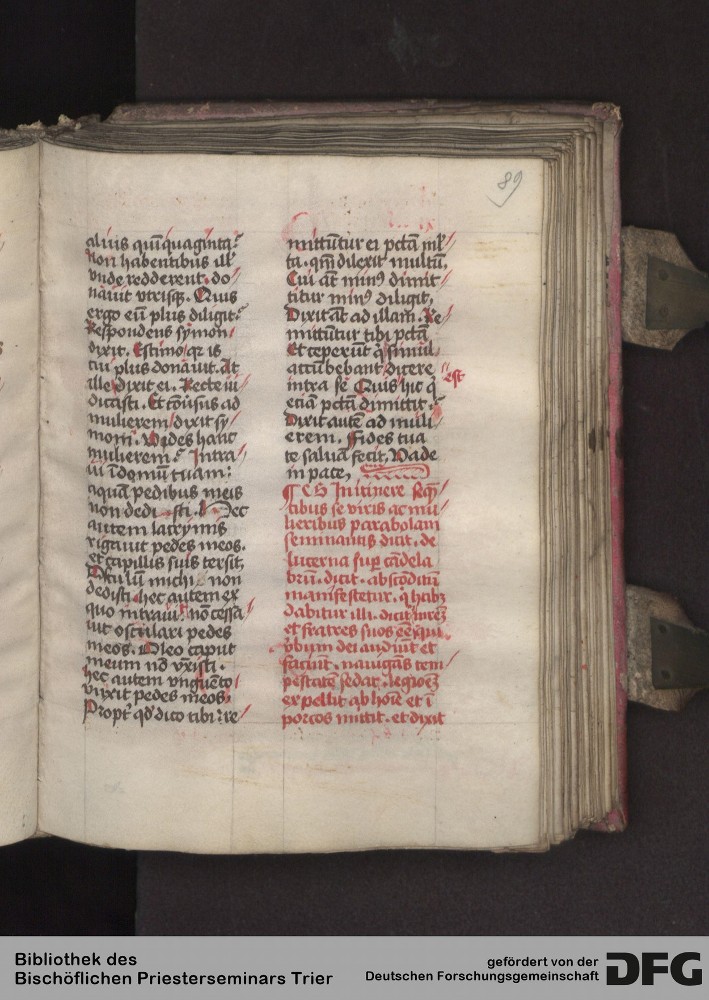 89
alius quinquaginta.
non habentibus ill'
vnde redderent. do
nauit vtrisq3. Quis
ergo eū plus diligit.
Respondens symon
dixit. Estimo qr is
cui plus donauit. At
ille Dixit ei. Recte iu
dicasti. Et cōuersus ad
mulierem dixit sy
moni. Vides hanc
mulierem. Intra
ui ī domū tuam:
aquā pedibus meis
non dedisti. Hec
autem lacrymis
rigauit pedes meos.
et capillis suis tersit,
Osculū michi non
dedisti. hec autem ex
quo intrauit nō cessa
uit osculari pedes
meos. Oleo caput
meum nō vnxisti.
hec autem vnguēto
vnxit pedes meos.
Propt' qd' dico tibi: re
mittūtur ei pctā ml'
ta. qm̄ dilexit multū,
Cui āt min9 dimit
titur min9 diligit,
Dixit āt ad illam. Re
mittūtur tibi pctā
Et ceperūt q simul
accūbebant dicere
intra se Quis hic ē q
est
eciā pctā dimittit.
Dixit autē ad muli
erem. Fides tua
te saluā fecit, Vade
in pace,
In itinere seq̄
tibus se viris ac mu
lieribus parabolam
seminantis dicit. de
lucerna sup cādela
brū. dicit. abscōditū
manifestetur. q habz
dabitur illi. dicit mrēz
et fratres suos eē qui
vbum dei audiūt et
faciūt. nauigās tem
pestatē sedat. legionēz
expellit ab hoīe et ī
porcos mittit. et dixit
Bibliothek des
Bischöflichen Priesterseminars Trier
gefördert von der
Deutschen Forschungsgemeinschaft
DFG